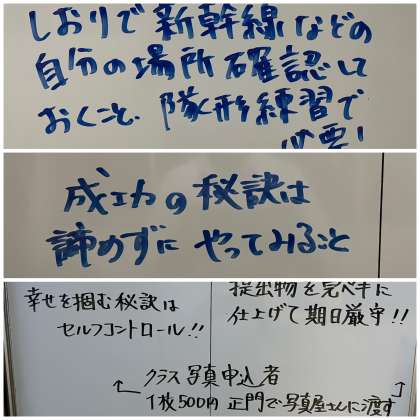 しおりで新幹線などの
自分の場所確認して
おくこと、隊形練習で
必要!
成功の秘訣は
諦めずにやってみること
幸せを掴む秘訣は
セルフコントロール!!
提出物を完ペキに
仕上げて期日厳守!!
クラス写真申込者
1枚500円 正門で写真屋さんに渡す